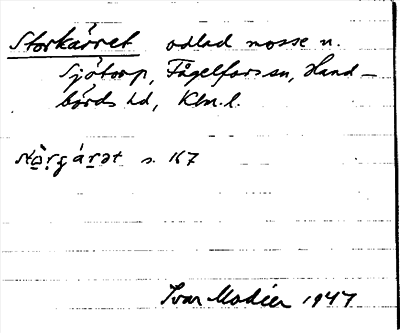 Storkärret odlad mosse n.
Sjötorp, Fågelfors sn, Hand-
börds hd, Klm. l.
s. 167
Ivar Modéer 1947